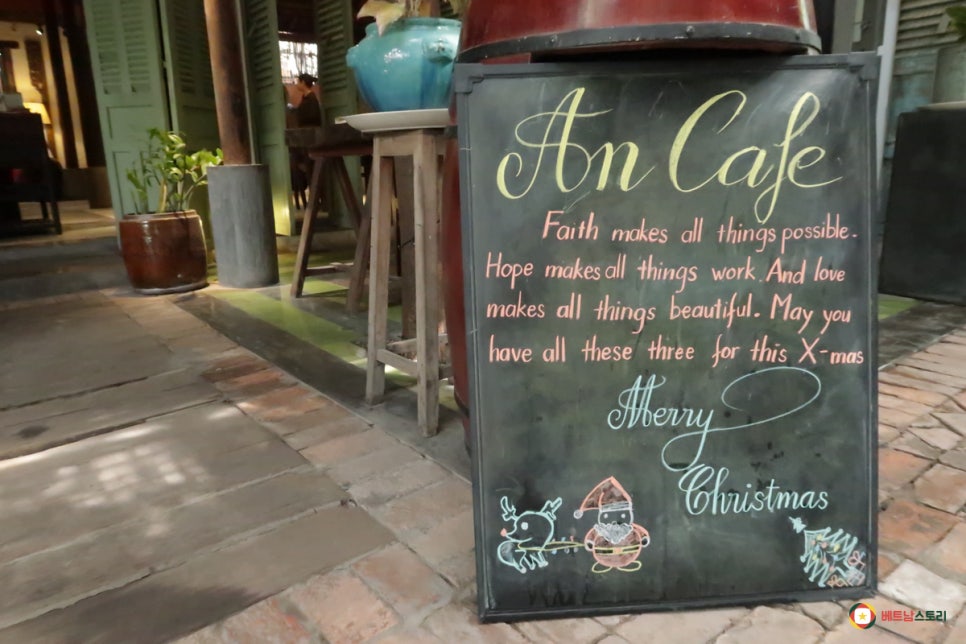 An Cafe
Faith makes all things possible.
Hope makes all things work. And love
makes all things beautiful. May you
have all these three for this X-mas
Merry
Christmas
베트남스토리